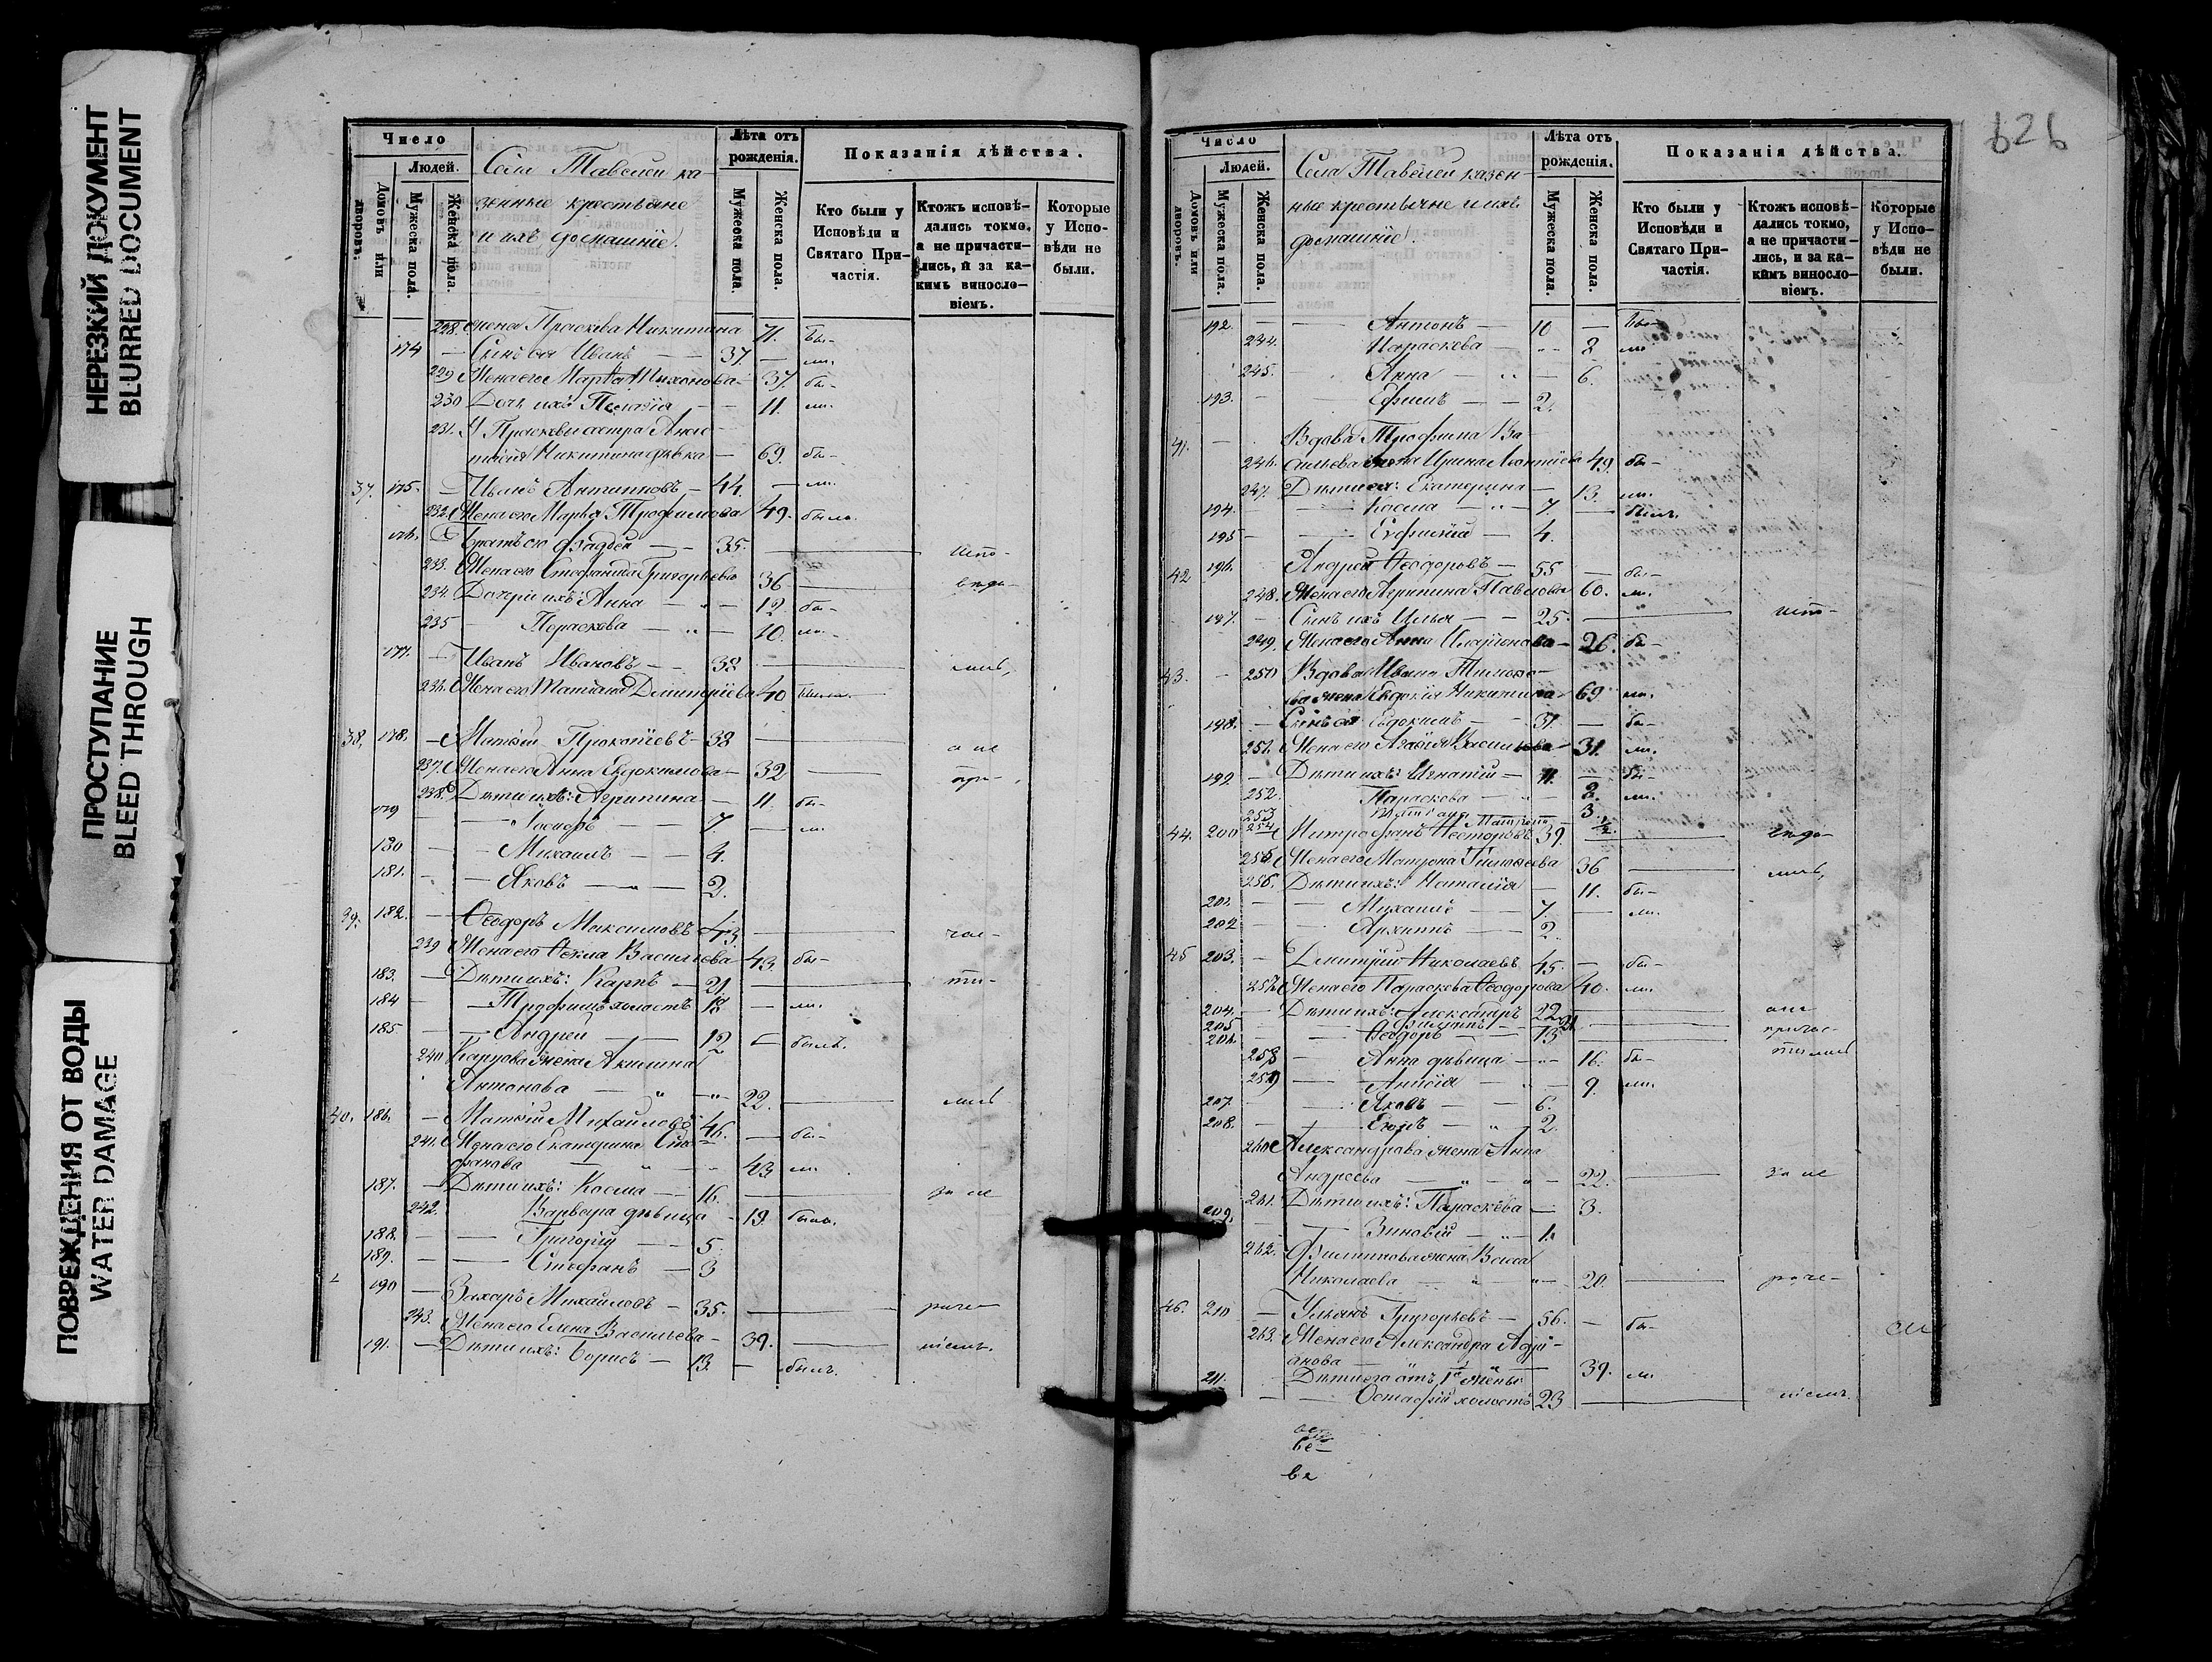 НЕРЕЗКИЙ ДОКУМЕНТ
BLURRED DOCUMENT
ПРОСТУПАНИЕ
BLEED THROUGH
ПОВРЕЖДЕНИЯ ОТ ВОДЫ
WATER DAMAGE
Число
Людей.
Домовъ или дворовъ.
Мужеска пола.
Женска пола.
Села Тавелей ка-
зенные крестьяне
и ихъ домашніе.
Лѣта отъ рожденія.
Мужеска пола.
Женска пола.
Показанія дѣйства.
Кто были у Исповѣди и Святаго Причастія.
Ктожъ исповѣдались токмо, а не причастились, и за какимъ винословіемъ.
Которые у Исповѣди не были.
228. жена Праскева Никитина 71. бы-
174 — Сынъ ея Иванъ — 37. — ли.
229 Жена его Марѳа Тихонова 37. бы-
230 Дочь ихъ Пелагія — 11. ли.
231. У Праскевы сестра Анас-
тасія Никитина дѣвка — 69. бы-
37. 175. — Иванъ Антиповъ — 44. — ли.
232. Жена его Марья Трофимова 49. были.
176. Братъ его Фадѣй — 35. — испо-
233. Жена его Стефанида Григорьева 36 — вѣда-
234. Дочери ихъ: Анна — 12. бы-
235 — Параскева — 10. ли.
177. — Иванъ Ивановъ — 38 — лись,
236. Жена его Татіана Димитріева 40
38. 178. — Матѳій Прокопіевъ — 38 — а не
237. Жена его Анна Евдокимова — 32 — при-
238. Дѣти ихъ: Агрипина — 11. бы-
179 — 7. — ли.
180 — Михаилъ — 4.
181. — Яковъ — 2.
39. 182. — Ѳеодоръ Максимовъ 43. — час-
239 Жена его Ѳекла Васильева 43. бы-
183. — Дѣти ихъ: Карпъ — 21. — ти-
184 — Трофимъ холостъ 18 — ли.
185 — Андрей — 12 — былъ.
240 Карпова жена Акилина
Антонова — 22. — лись
40. 186. — Матѳій Михайловъ 46. — бы-
241. Жена его Екатерина Сте-
фанова — 43 ли.
187. — Дѣти ихъ: Косма — 16. — за не
242. Варвара дѣвица — 19. была.
188. — Григорій — 5.
189. — Стефанъ — 3
190 — Захаръ Михайловъ — 35. — раче-
243. Жена его Елена Васильева — 39. — ніемъ.
191. — Дѣти ихъ: Борисъ — 13. — былъ.
626
Число
Людей.
Домовъ или дворовъ.
Мужеска пола.
Женска пола.
Села Тавелей казен-
ные крестьяне и ихъ
домашніе.
Лѣта отъ рожденія.
Мужеска пола.
Женска пола.
Показанія дѣйства.
Кто были у Исповѣди и Святаго Причастія.
Ктожъ исповѣдались токмо, а не причастились, и за какимъ винословіемъ.
Которые у Исповѣди не были.
192. — Антонъ — 10 — бы-
244. Параскева — 8 ли
245. — Анна — 6.
193. — Ефимъ — 2.
41. — Вдова Трофима Ва-
246. сильева жена Ирина Леонтіева 49. бы-
247. Дѣти ея: Екатерина — 13. ли.
194. — Косма — 7. — былъ.
195 — Евфимій — 4.
42 196. Андрей Ѳеодоровъ — 55 — бы-
248. Жена его Агрипина Павлова 60. ли.
197. — Сынъ ихъ Илья — 25. — испо-
249. Жена его Анна Иларіонова — 26. бы-
43. — 250 Вдова Ивана Тимоѳе-
ева жена Евдокія Никитина 69 ли.
198. — Сынъ ея Евдокимъ — 31. — бы-
251. Жена его Агафія Васильева 31. ли.
199. — Дѣти ихъ: Игнатій — 11. — бы-
252. Параскева — 8. ли.
253 Татіана 3.
254 Матрона 1/2.
44. 200 — Митрофанъ Несторовъ 39. — вѣда-
255 Жена его Матрона Тимоѳеева 36 — лись,
256. Дѣти ихъ: Наталія — 11. бы-
201. — Михаилъ — 7. — ли.
202 — Архипъ — 2.
45 203. — Димитрій Николаевъ 45. — бы-
257. Жена его Параскева Ѳеодорова 40. ли.
204. — Дѣти ихъ: Александръ 22 — а не
205 Филиппъ — 21 — причас-
206. — Ѳеодоръ — 13 — тились
258 — Анна дѣвица — 16. бы-
259 — Анисія — 9. ли.
207. — Яковъ — 6.
208. — 2.
260 Александрова жена Анна
Андреева — 22. — за не
261. Дѣти ихъ: Параскева — 3.
209. — Зиновій — 1.
262. Филиппова жена Васса
Николаева — 20. — раче-
46. 210 — Ульянъ Григорьевъ — 56. — бы-
263. Жена его Александра Адрі-
анова — 39. ли
211. Дѣти его отъ 1й жены
— Остафій холостъ 23 — ніемъ.
ве-
ве